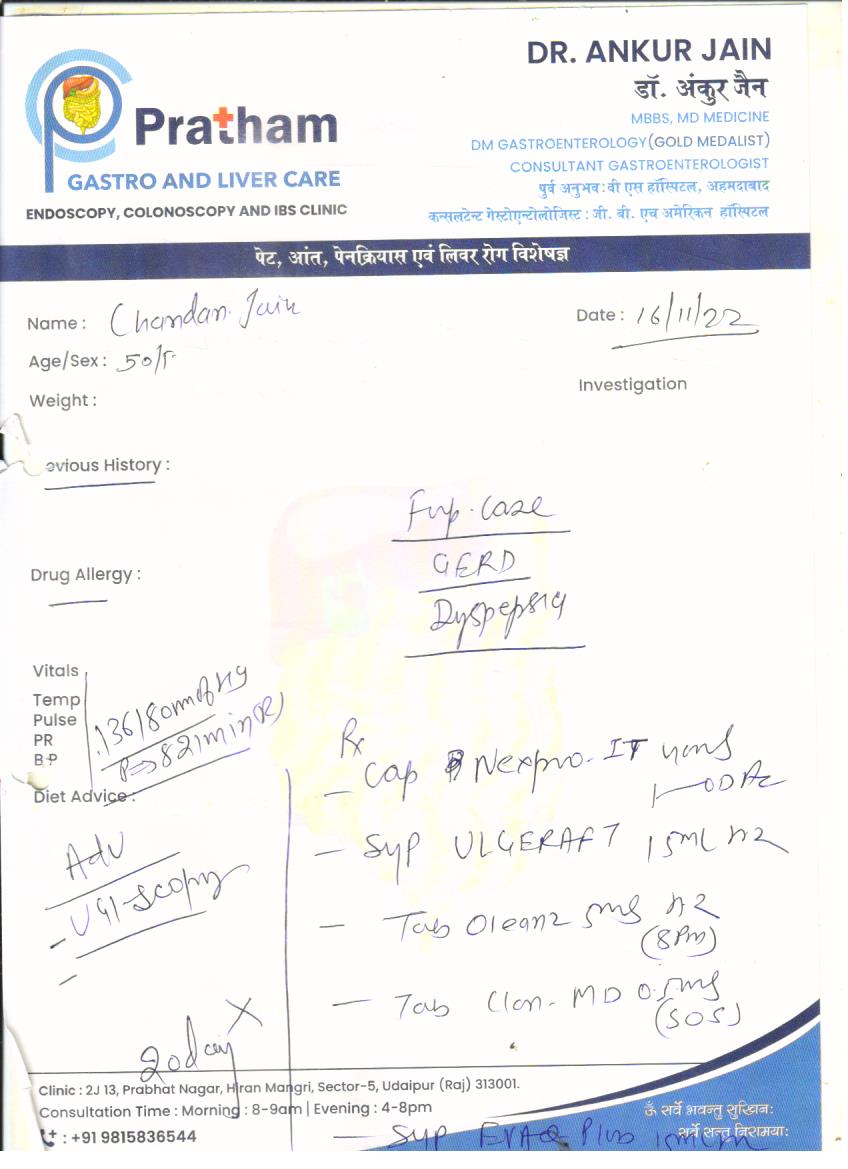 DR. ANKUR JAIN
डॉ. अंकुर जैन
MBBS, MD MEDICINE
DM GASTROENTEROLOGY (GOLD MEDALIST)
CONSULTANT GASTROENTEROLOGIST
पुर्व अनुभव : वी एस हॉस्पिटल, अहमदाबाद
कन्सलटेन्ट गेस्टोएन्टोलोजिस्ट : जी. बी. एच अमेरिकन हॉस्पिटल
Pratham
GASTRO AND LIVER CARE
ENDOSCOPY, COLONOSCOPY AND IBS CLINIC
पेट, आंत, पेनक्रियास एवं लिवर रोग विशेषज्ञ
Name : Chandan Jain
Date : 16/11/22
Age/Sex : 50/
Weight :
Investigation
evious History :
Fup. Case
GERD
Drug Allergy :
Dyspepsia
Vitals
Temp
Pulse
PR
BP
136/80mmofHg
P→82/min (R)
Diet Advice :
Rx
– Cap Nexpro-IT 40mg
OD AC
Adv
– UGI-Scopy
–
– Syp ULGERAFT 15ML
– Tab Oleanz 5mg
(8Pm)
– Tab Clon-MD 0.5mg
(SOS)
X 20day
Clinic : 2J 13, Prabhat Nagar, Hiran Mangri, Sector-5, Udaipur (Raj) 313001.
Consultation Time : Morning : 8-9am | Evening : 4-8pm
: +91 9815836544
ॐ सर्वे भवन्तु सुखिनः
सर्वे सन्तु निरामयाः
– Syp EVAQ Plus 15ML